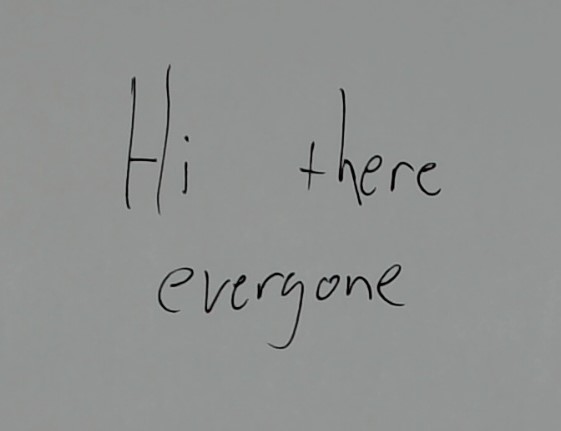 Hi there
everyone